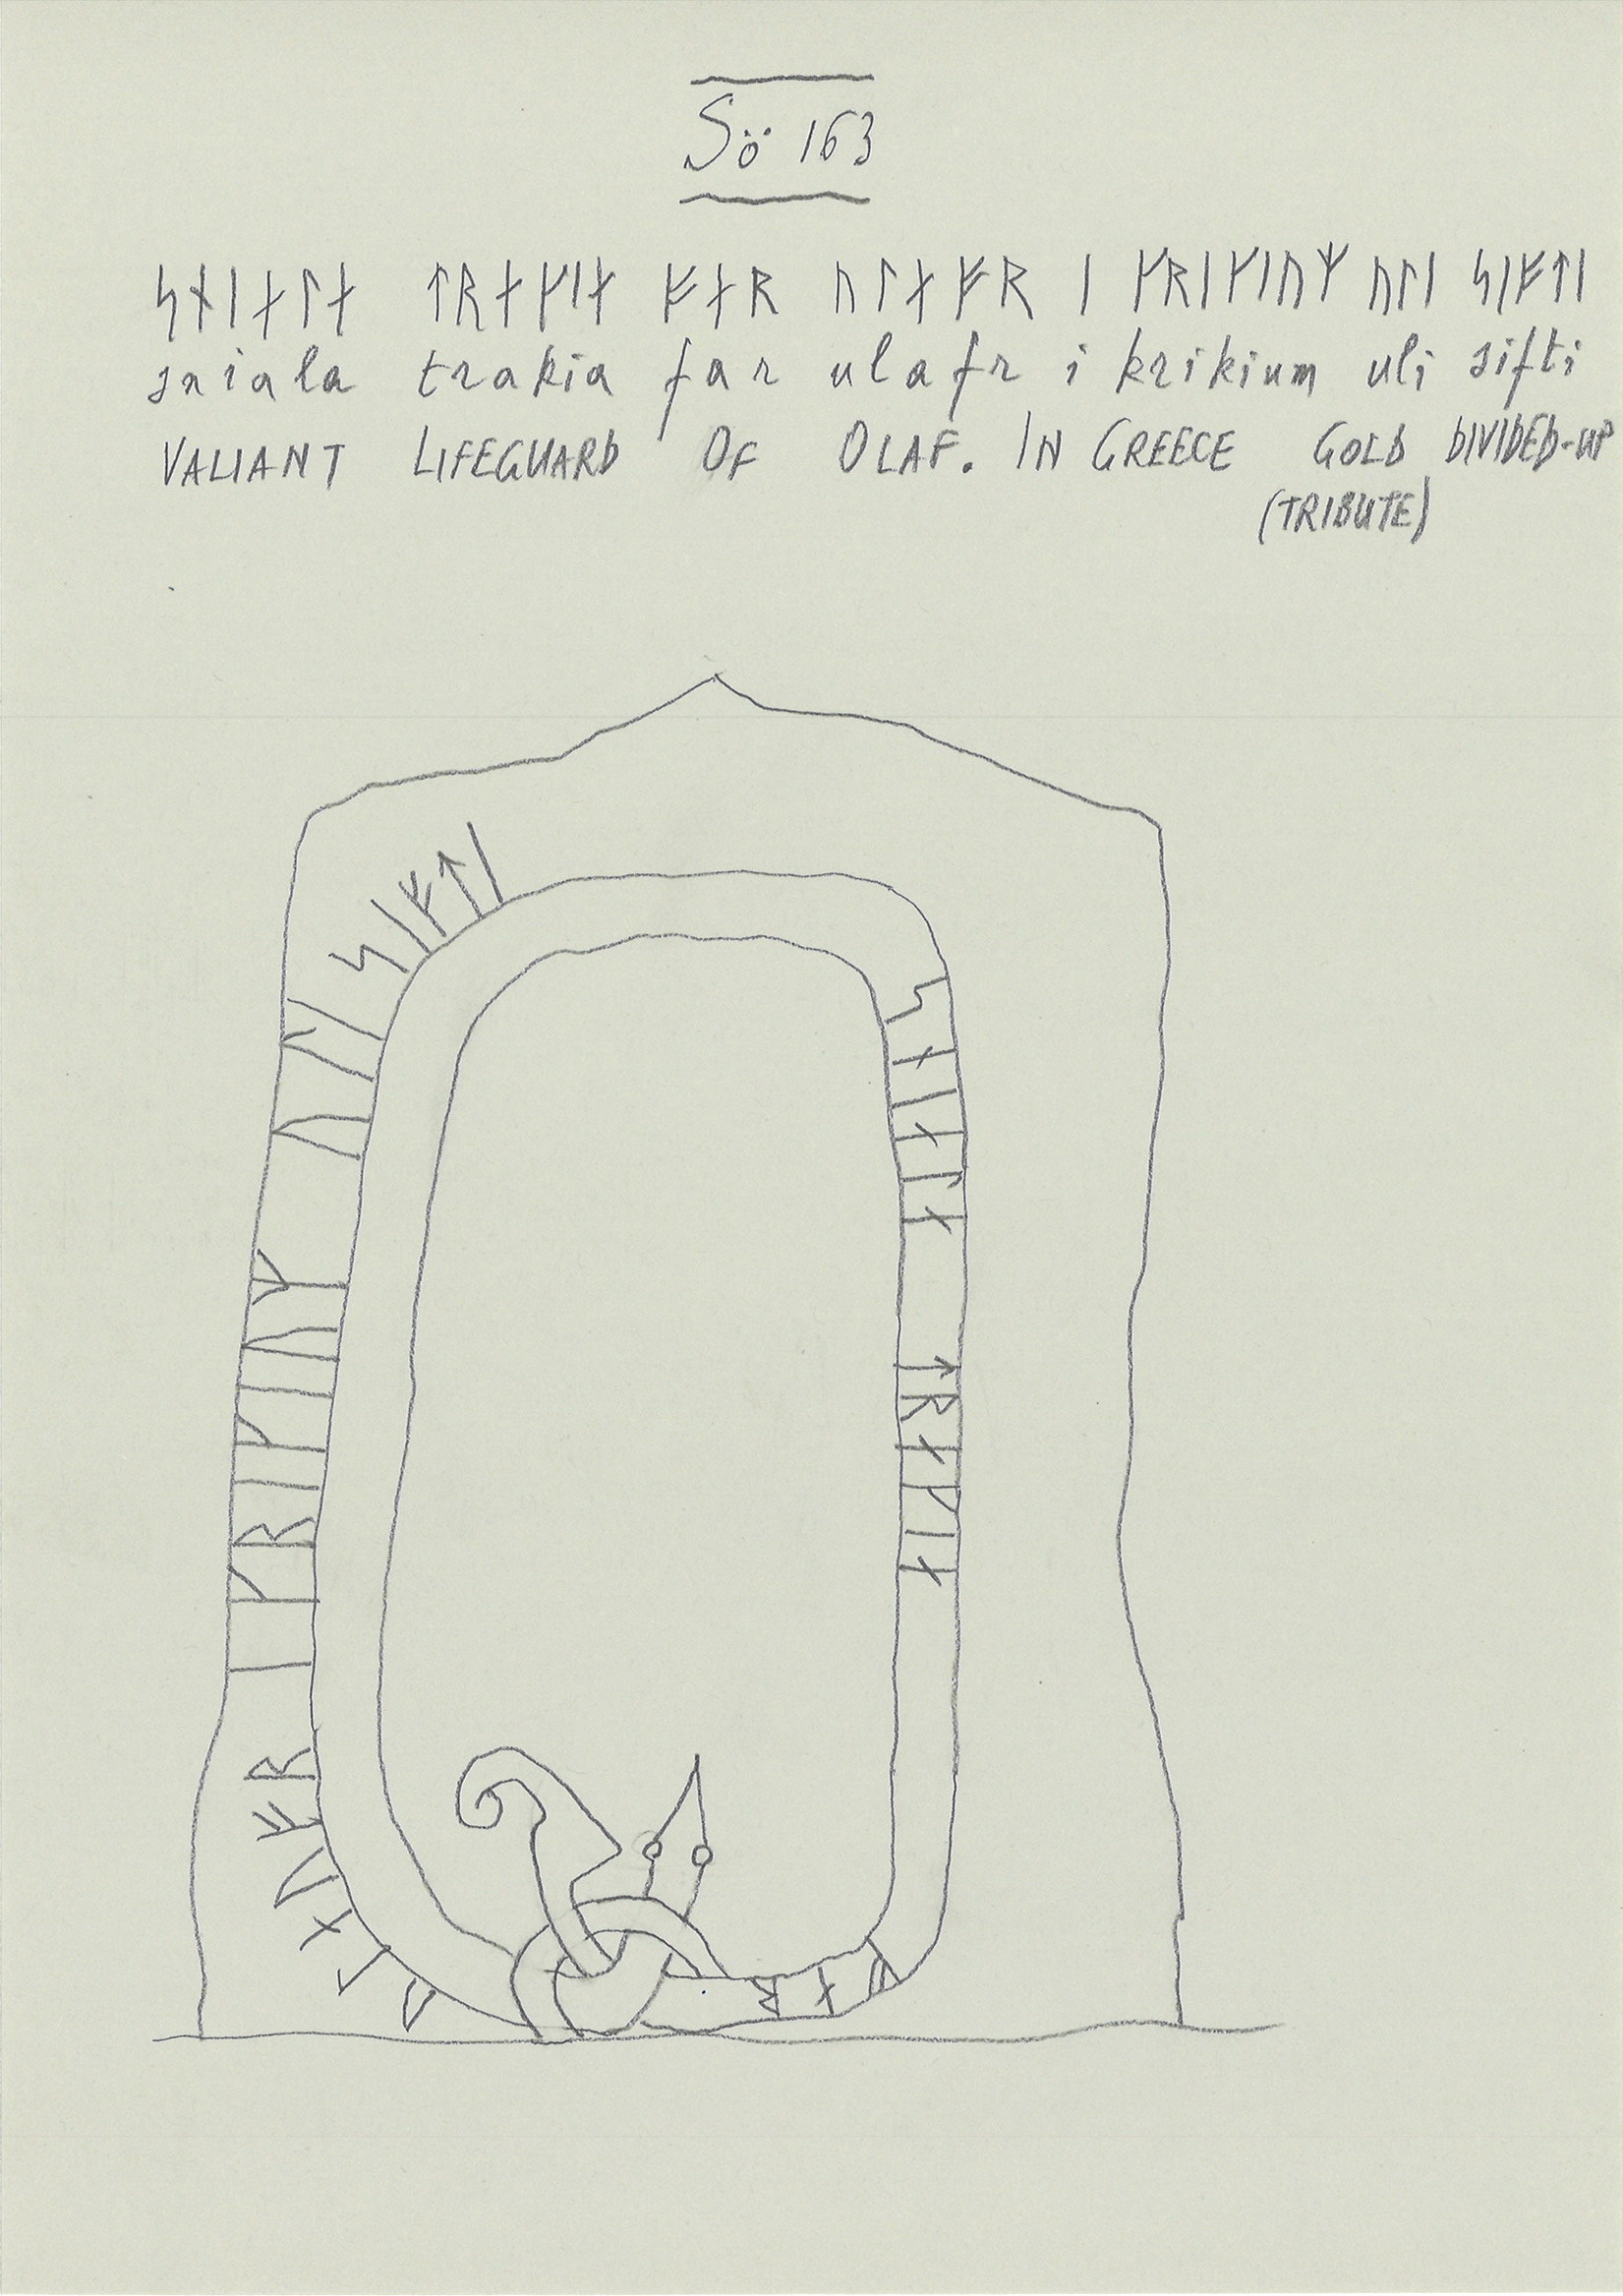 Sö 163
ᛋᚾᛁᛅᛚᛅ ᛏᚱᛅᚴᛁᛅ ᚠᛅᚱ ᚢᛚᛅᚠᚱ ᛁ ᚴᚱᛁᚴᛁᚢᛘ ᚢᛚᛁ ᛋᛁᚠᛏᛁ
sniala trakia far ulafr i krikium uli sifti
VALIANT LIFEGUARD OF OLAF. IN GREECE GOLD DIVIDED-UP
(TRIBUTE)
ᛋᚾᛁᛅᛚᛅ ᛏᚱᛅᚴᛁᛅ ᚠᛅᚱ
ᚢᛚᛅᚢᚠᚱ ᛁ ᚴᚱᛁᚴᛁᚢᛘ ᚢᛚᛁ ᛋᛁᚠᛏᛁ